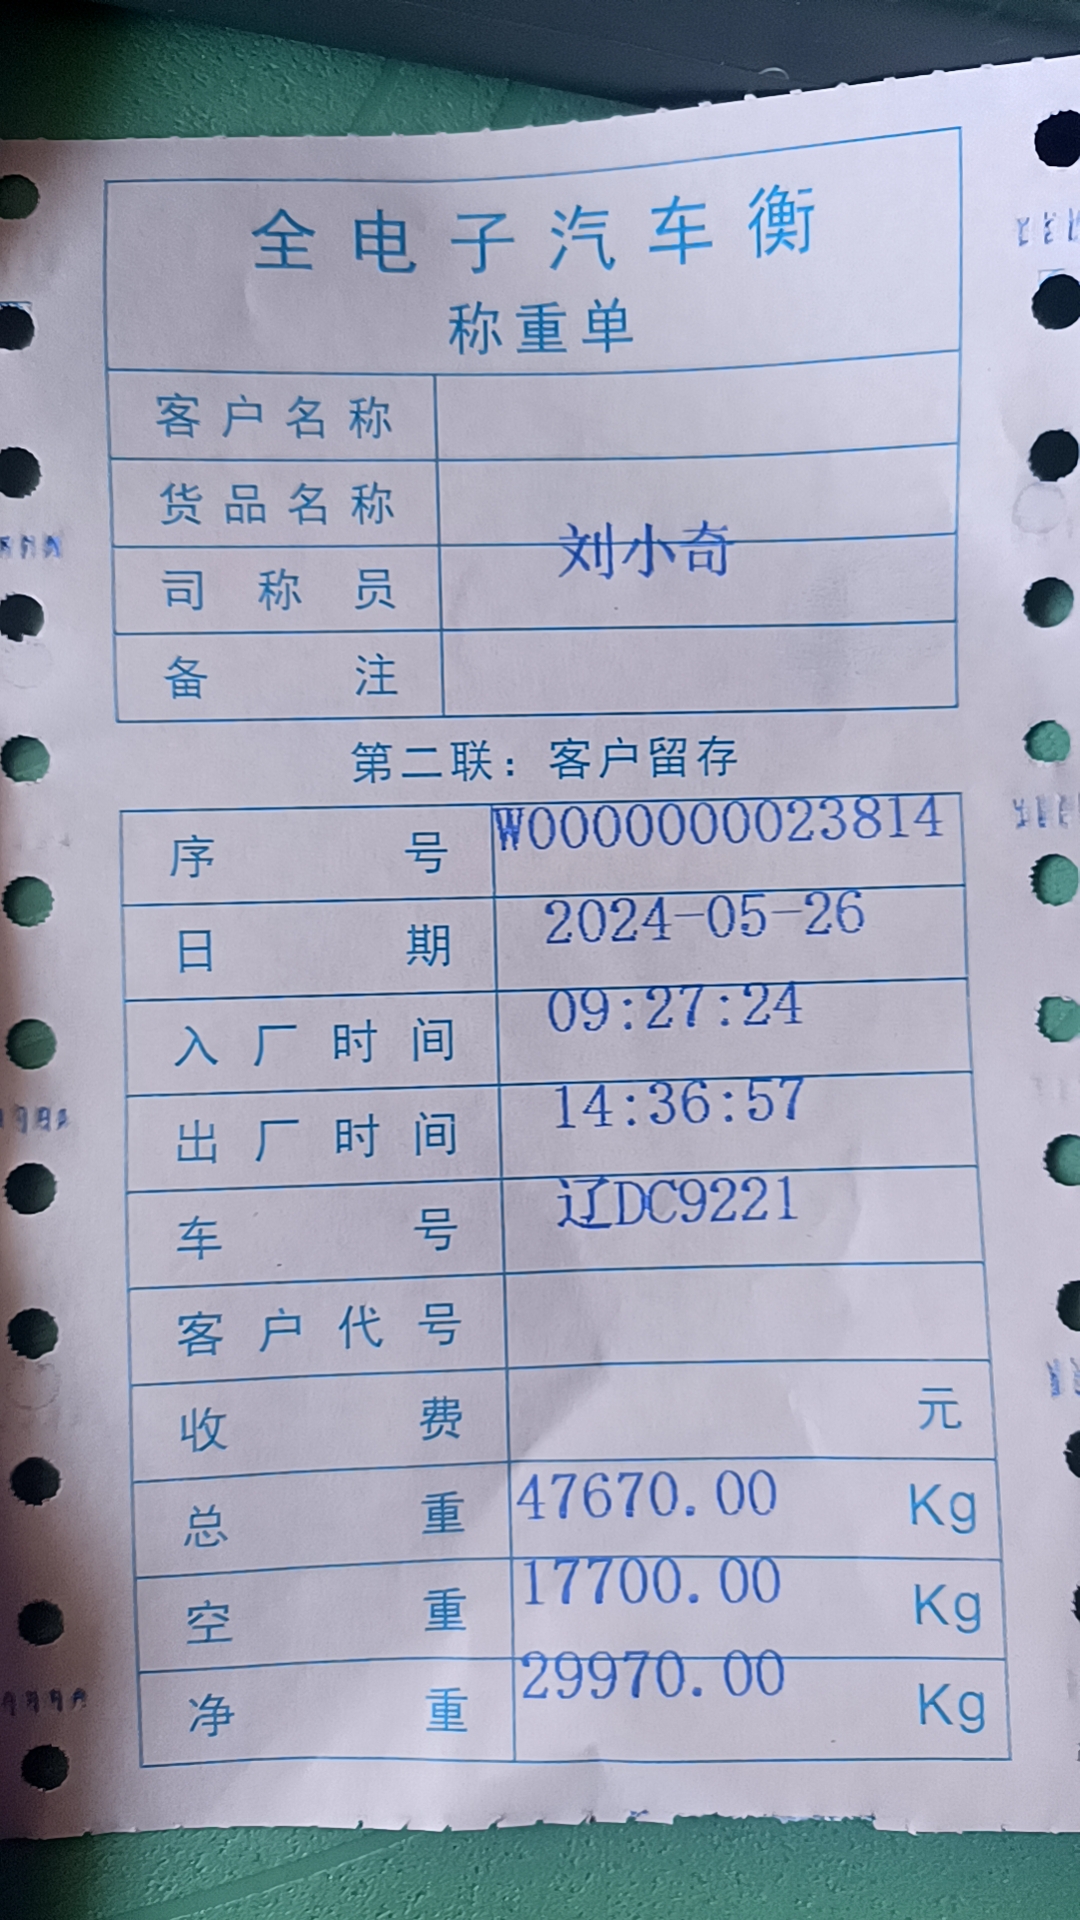 全电子汽车衡
称重单
客户名称
货品名称
司称员 刘小奇
备注
第二联：客户留存
序号 W0000000023814
日期 2024-05-26
入厂时间 09:27:24
出厂时间 14:36:57
车号 辽DC9221
客户代号
收费 元
总重 47670.00 Kg
空重 17700.00 Kg
净重 29970.00 Kg